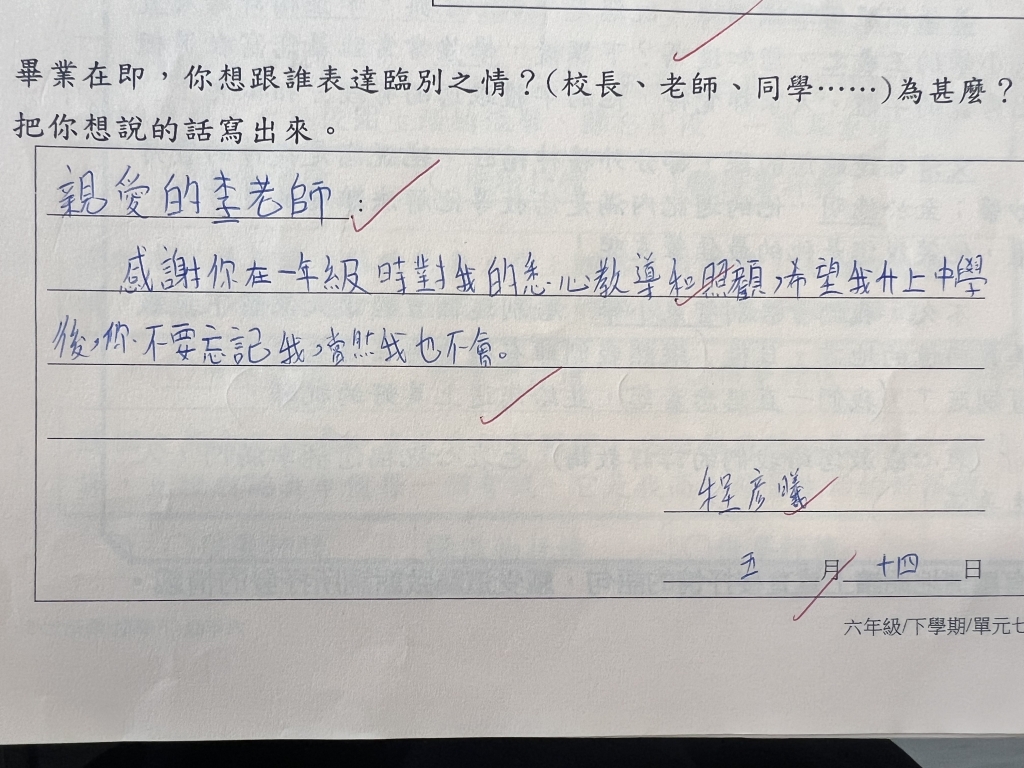 畢業在即，你想跟誰表達臨別之情？(校長、老師、同學……)為甚麼？
把你想說的話寫出來。
親愛的李老師：
感謝你在一年級時對我的悉心教導和照顧，希望我升上中學
後，你不要忘記我，當然我也不會。
程彥曦
五月十四日
六年級/下學期/單元七